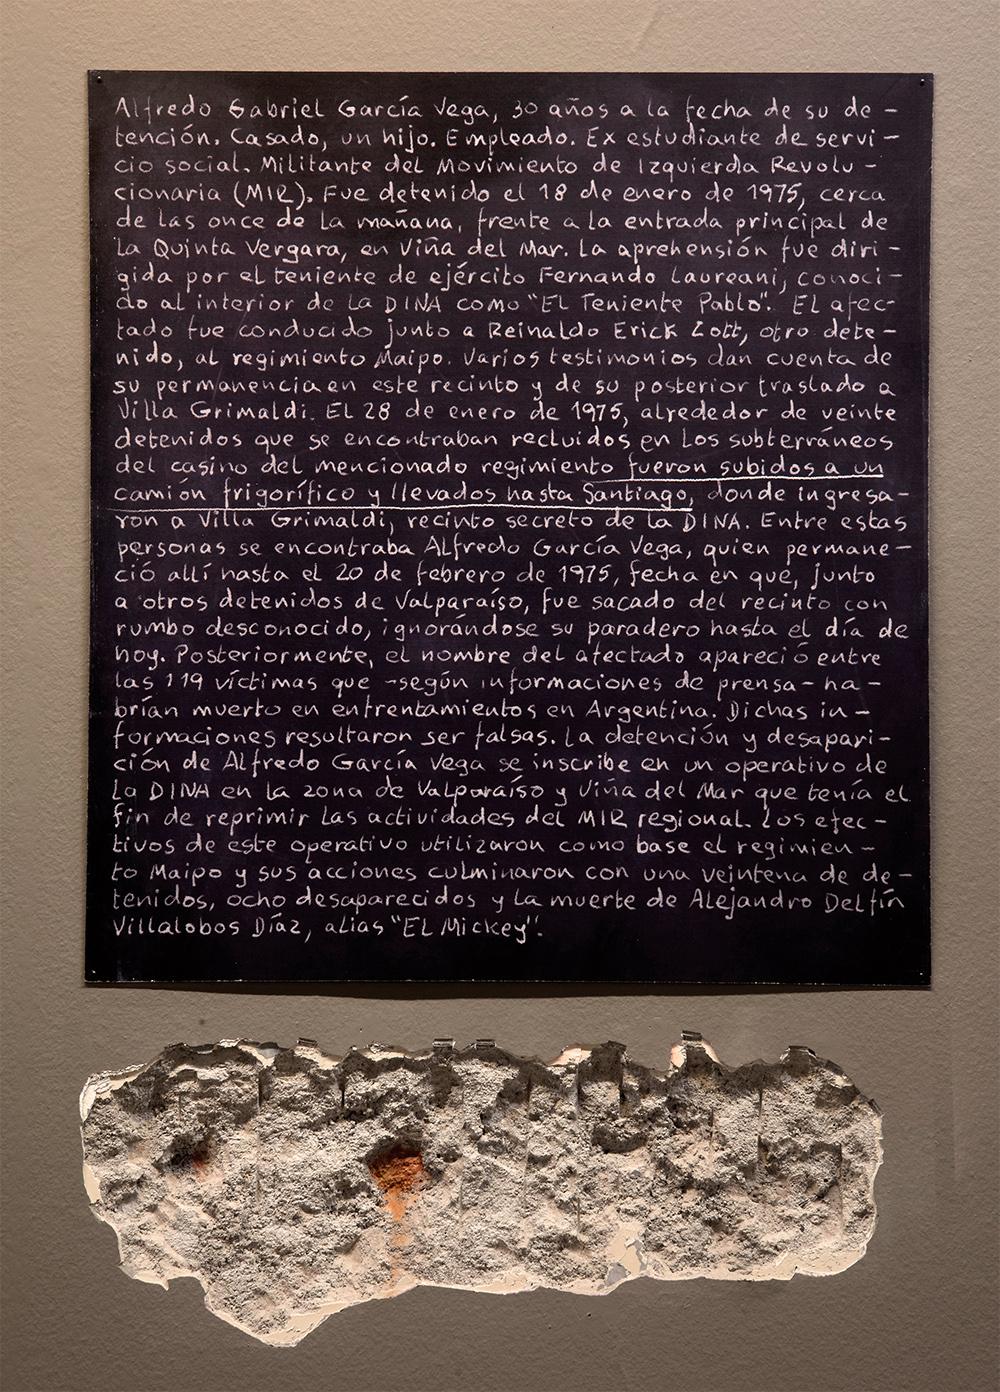 Alfredo Gabriel García Vega, 30 años a la fecha de su de –
tención. Casado, un hijo. Empleado. Ex estudiante de servi –
cio social. Militante del Movimiento de Izquierda Revolu –
cionaria (MIR). Fue detenido el 18 de enero de 1975, cerca
de las once de la mañana, frente a la entrada principal de
la Quinta Vergara, en Viña del Mar. La aprehensión fue diri –
gida por el teniente de ejército Fernando Laureani, conoci –
do al interior de la DINA como "El Teniente Pablo". El afec–
tado fue conducido junto a Reinaldo Erick Zott, otro dete –
nido, al regimiento Maipo. Varios testimonios dan cuenta de
su permanencia en este recinto y de su posterior traslado a
Villa Grimaldi. El 28 de enero de 1975, alrededor de veinte
detenidos que se encontraban recluidos en los subterráneos
del casino del mencionado regimiento fueron subidos a un
camión frigorífico y llevados hasta Santiago, donde ingresa–
ron a Villa Grimaldi, recinto secreto de la DINA. Entre estas
personas se encontraba Alfredo García Vega, quien permane–
ció allí hasta el 20 de febrero de 1975, fecha en que, junto
a otros detenidos de Valparaíso, fue sacado del recinto con
rumbo desconocido, ignorándose su paradero hasta el día de
hoy. Posteriormente, el nombre del afectado apareció entre
las 119 víctimas que –según informaciones de prensa– ha –
brían muerto en enfrentamientos en Argentina. Dichas in –
formaciones resultaron ser falsas. La detención y desapari–
ción de Alfredo García Vega se inscribe en un operativo de
la DINA en la zona de Valparaíso y Viña del Mar que tenía el
fin de reprimir las actividades del MIR regional. Los efec–
tivos de este operativo utilizaron como base el regimien –
to Maipo y sus acciones culminaron con una veintena de de–
tenidos, ocho desaparecidos y la muerte de Alejandro Delfín
Villalobos Díaz, alias "El Mickey".